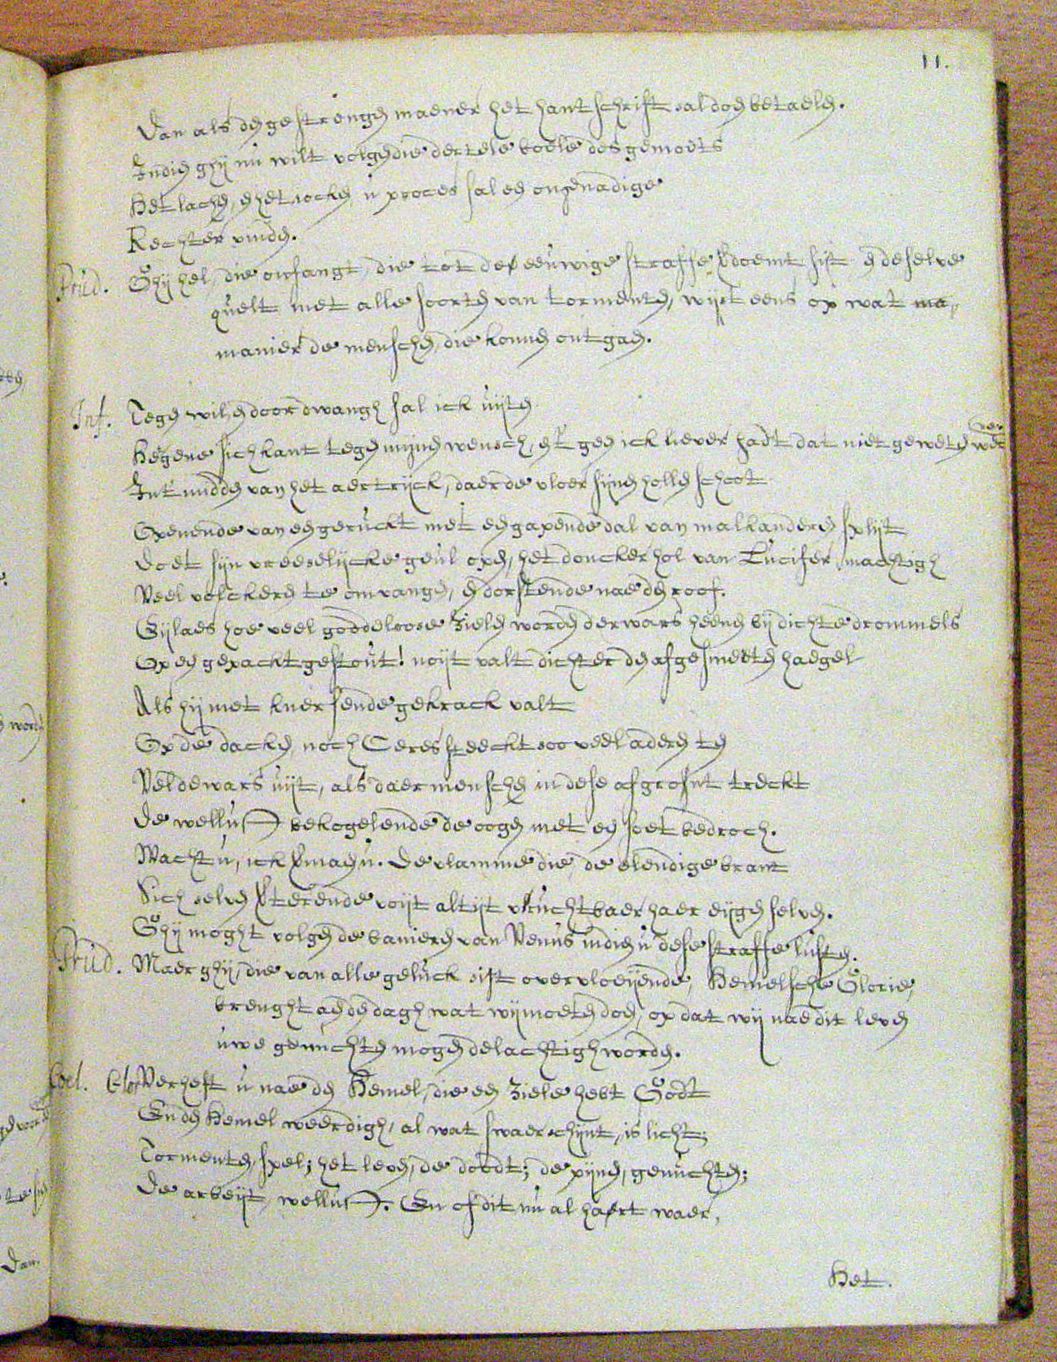 11.
Dan als den gestrengen maener het hantschrift sal doen betaelen.
Indien ghij nu wilt volgen die dertele boele dos gemoets
Het lachen, en het jocken u proces sal een ongenadige
Rechter vinden.
Prud. Ghij hel, die omfangt, die tot de eeuwige straffe verdoemt sijt en deselve
quelt met alle soorten van tormenten, wijst eens op wat ma,
manier de menschen, die konnen ontgaen.
Inf. Tegen wil, en door dwangh sal ick uijten
Hegene sich kant tegen mijnen wensch, en 't geen ick liever hadt dat niet geweten wer
Int midden van het aertrijck, daer de vloer sijnen hollen schoot
Openende van een geruckt met een gapende dal van malkanderen splijt
Doet sijn vreeselijcke geul open, het doncker hol van Lucifer, machtigh
Veel volckeren te omvangen, en dorstende nae den roof.
Eijlaes hoe veel goddeloose zielen worden derwars heenen bij dichte drommels
Op een gepackt gestout! noijt valt dichter den afgesmeeten haegel
Als hij met knersende gekrack valt
Op de dacken noch Ceres steeckt soo veel aderen ten
Veldewars uijt, als daer menschen in dese afgront treckt
De wellust bekogelende de oogen met een soet bedroch.
Wacht u, ick vermaen u. De vlamme die de elendige brant
Sich selven verterende voijt altijt vruchtbaer haer eijgen selven.
Ghij moght volgen de banieren van Venus indien u dese straffe lusten.
Prud. Maer ghij, die van alle geluck sijt overvloeijende, Hemelsche Glorie,
brenght aen den dagh wat wij moeten doen, op dat wij nae dit leven
uwe genuchten mogen delachtigh worden.
Coel. Glor Verheft u nae den Hemel, die een ziele hebt Godt
En den Hemel weerdigh, al wat swaer schijnt, is licht;
Tormenten, spel; het leven, de doodt; de pijnen, genuchten;
De arbeijt, wellust. En of dit nu al hart waer,
Het.